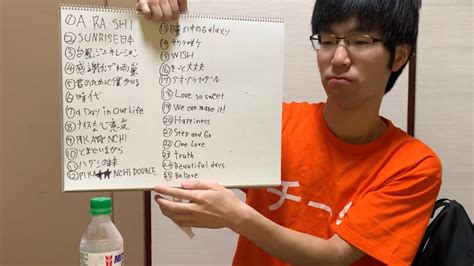 ①A・RA・SHI
②SUNRISE日本
③台風ジェネレーション
④感謝カンゲキ雨嵐
⑤君のために僕がいる
⑥時代
⑦a Day in Our Life
⑧ナイスな心意気
⑨PIKA★NCHI
⑩とまどいながら
⑪ハダシの未来
⑫PIKA★★NCHI DOUBLE
⑬瞳の中のGalaxy
⑭サクラ咲ケ
⑮WISH
⑯きっと大丈夫
⑰アオゾラペダル
⑱Love so sweet
⑲We can make it!
⑳Happiness
㉑Step and Go
㉒One Love
㉓truth
㉔Beautiful days
㉕Believe
チー